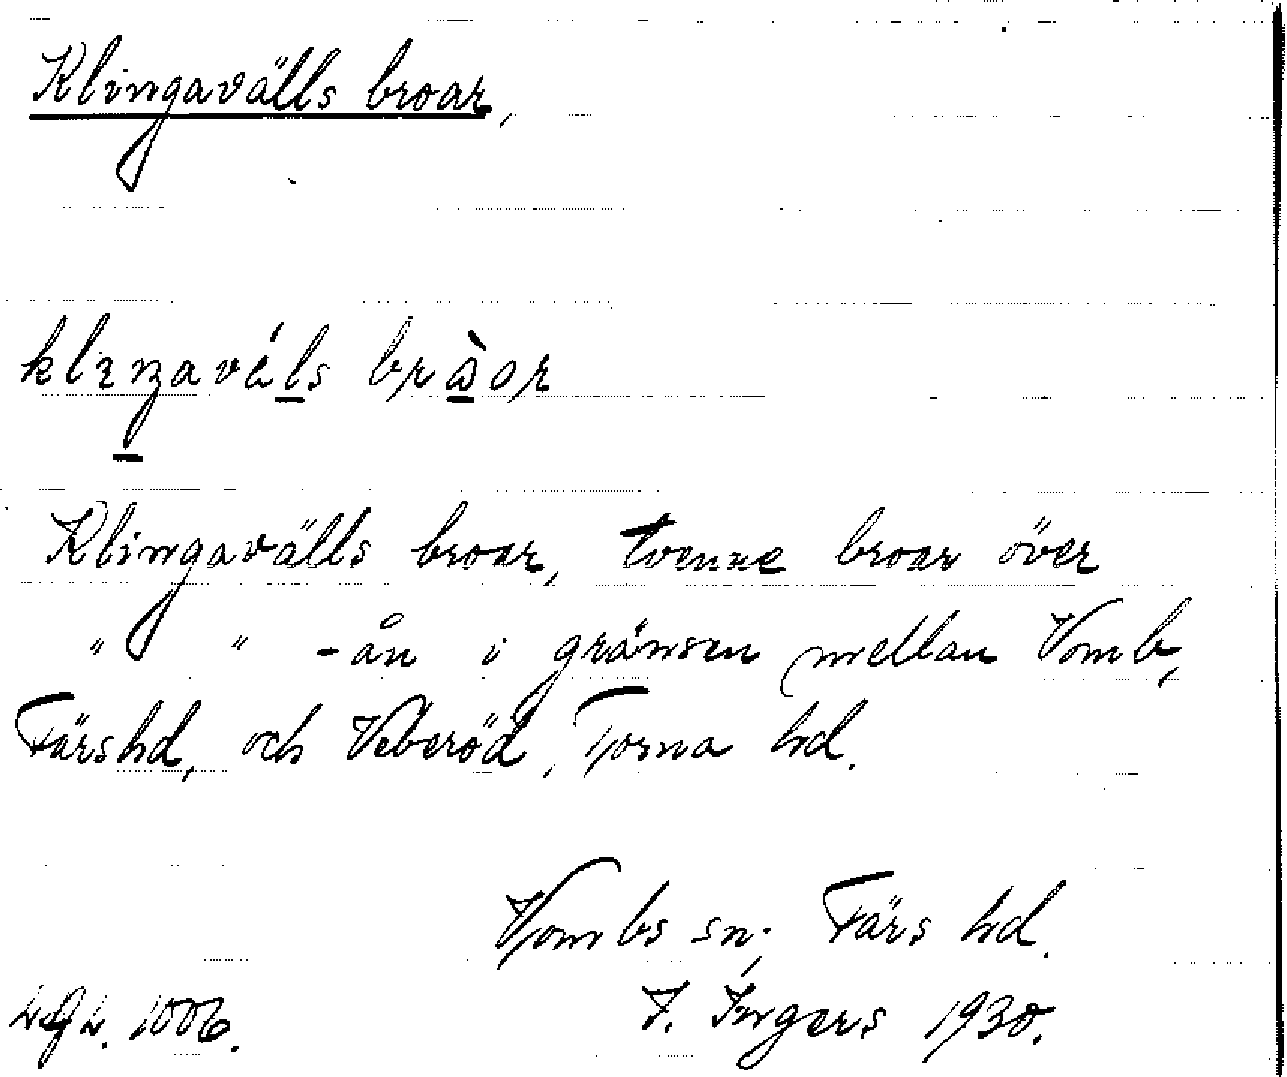 Klingavälls broar,
klıŋavǽls bròor
Klingavälls broar, tvenne broar över
" " -ån i gränsen mellan Vomb,
Färs hd, och Veberöd, Torna hd.
Vombs sn; Färs hd.
1006. I. Ingers 1930.